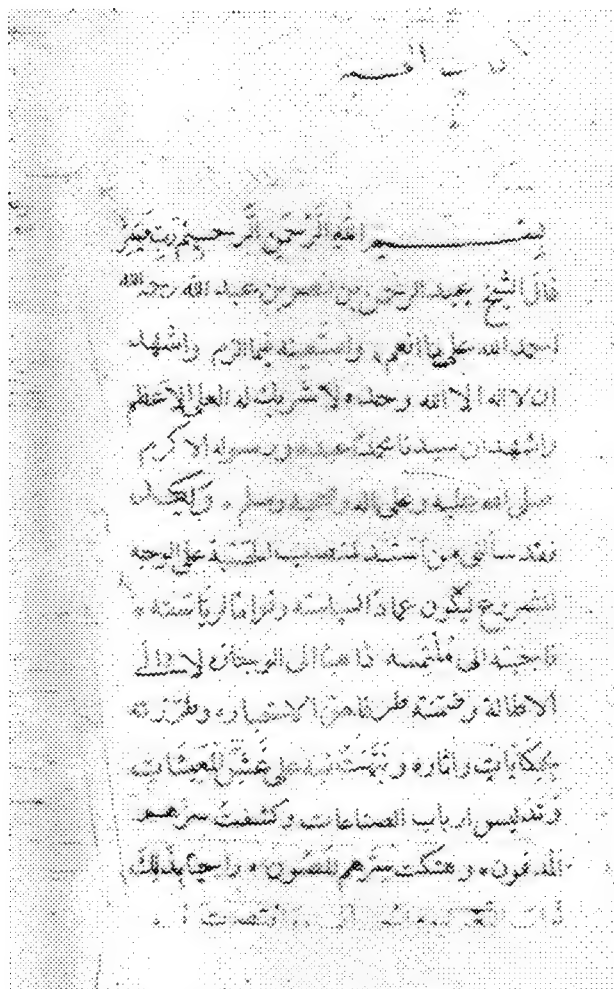 بسم الله الرحمن الرحيم رب يسر
قال الشيخ عبد الرحمن بن نصر بن عبد الله رحمه الله
احمد الله على ما انعم، واستعينه فيما الزم واشهد
ان لا اله الا الله وحده لا شريك له العلي الاعظم
واشهد ان سيدنا محمدا عبده ورسوله الاكرم
صلى الله عليه وعلى اله وصحبه وسلم،
فقد سألني من استند لمنصب الحسبة على الوجه
المشروع ليكون عمادا لسياسته وقواما لرياسته،
فاجبته الى ملتمسه ذاهبا الى الوجازه لا الى
الاطالة وضمنته طرفا من الاخبار، وطرزته
بحكايات واثار، ونبهت فيه على غش المعيشات
وتدليس ارباب الصناعات وكشفت سرهم
المدفون، وهتكت سترهم المصون، راجيا بذلك